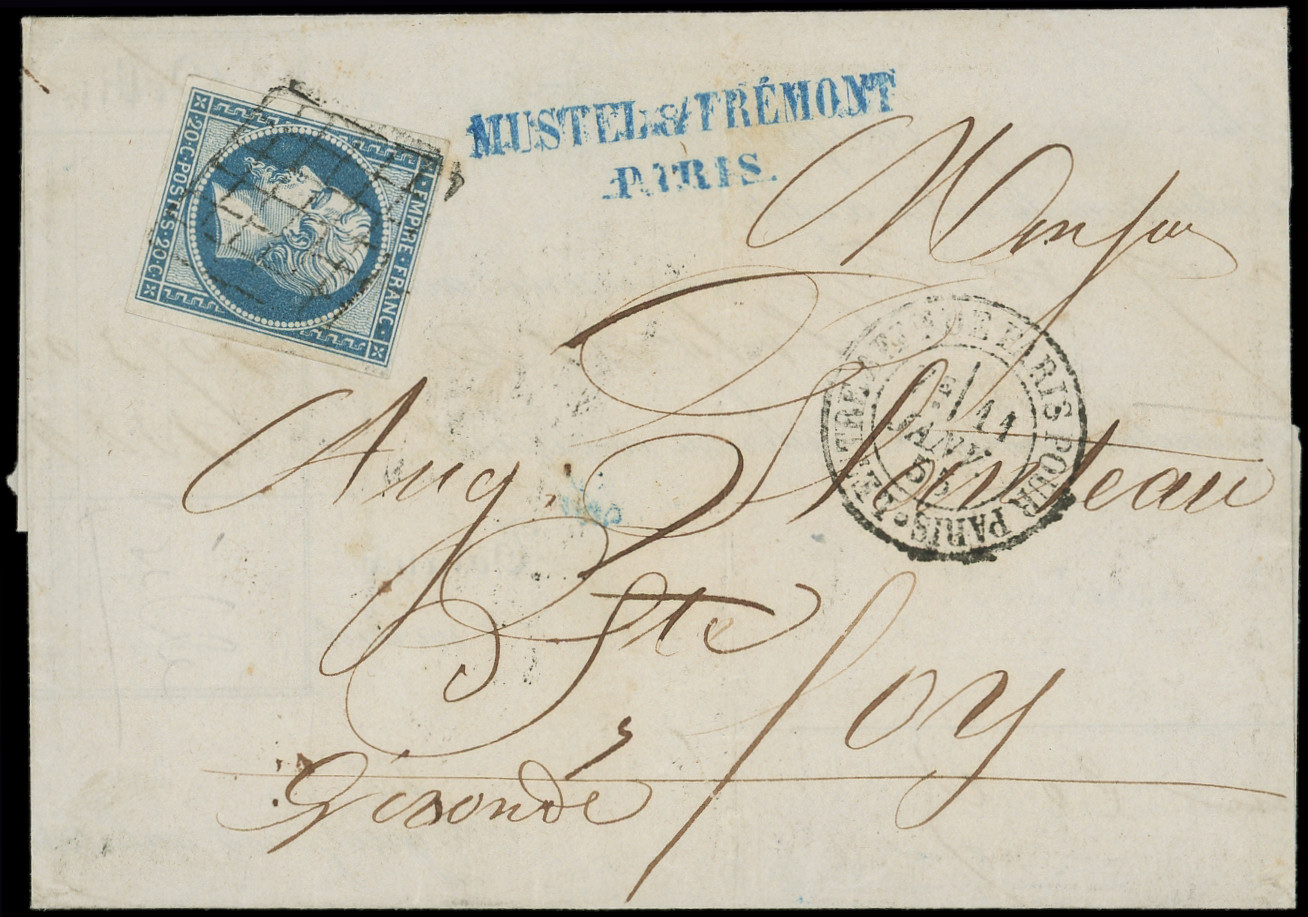 EMPIRE·FRANC·
20·C·POSTES·20·C·
MUSTEL & FRÉMONT
PARIS.
Monsieur
Aug.
Ste foy
Gironde
PARIS POUR PARIS
11
JANV